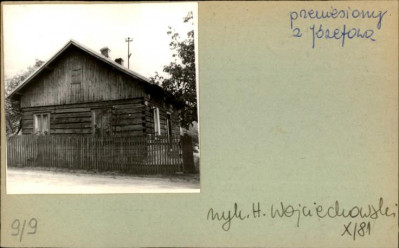 przeniesiony
z Józefowa
wyk. H. Wojciechowski
X/81
9/9